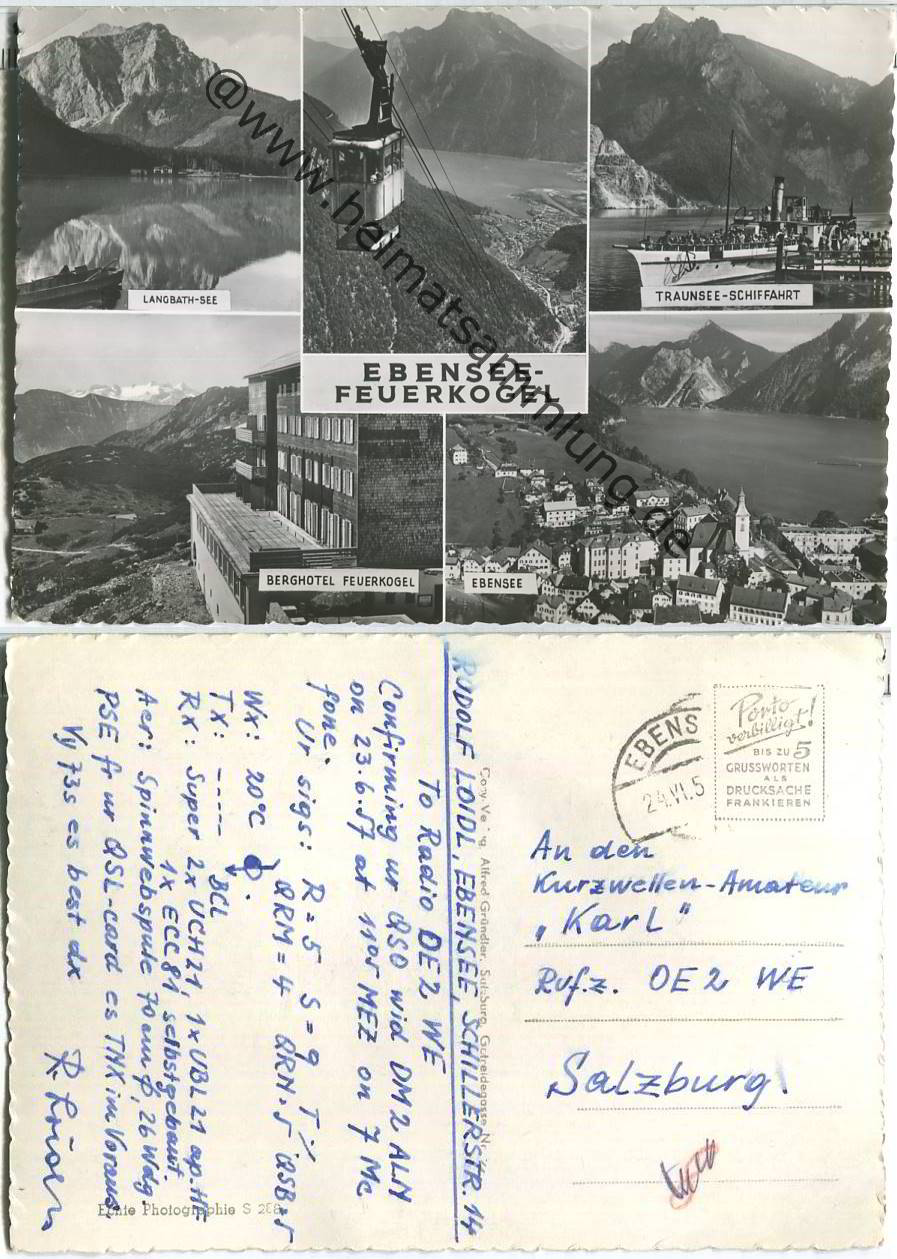 LANGBATH-SEE
TRAUNSEE-SCHIFFAHRT
EBENSEE-
FEUERKOGEL
BERGHOTEL FEUERKOGEL
EBENSEE
@www.heimatsammlung.de
RUDOLF LOIDL, EBENSEE, SCHILLERSTR. 14
To Radio OE2 WE
Confirming ur QSO wid DM2 ALN
on 23.6.57 at 1105 MEZ on 7 Mc
fone.
Ur sigs: R=5 S=9 T%
QRM=4 QRN=5 QSB=5
Wx: 20°C
Tx: ----- BCL
Rx: Super 2x UCH21, 1x UBL21 ap. HF
1x ECC81 selbstgebaut.
Aer: Spinnwebspule 70 mm ϕ, 26 Wdg.
PSE fr ur QSL-card es TNX im Voraus,
Vy 73s es best dx
R. Loidl
Echte Photographie S 288
Alfred Gründler, Salzburg, Getreidegasse
EBENS
24.VI.5
Porto
verbilligt!
BIS ZU 5
GRUSSWORTEN
ALS
DRUCKSACHE
FRANKIEREN
An den
Kurzwellen-Amateur
„KarL"
Ruf.z. OE2 WE
Salzburg!